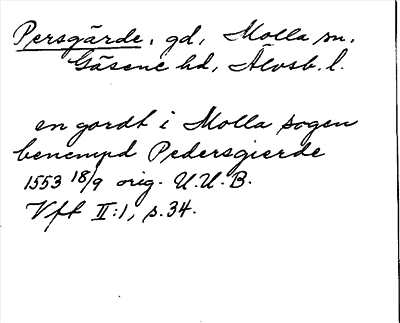 Persgärde, gd, Molla sn,
Gäsene hd, Älvsb. l.
en gordt i Molla sogen
benempd Pedersgierde
1553 18/9 orig. U.U.B.
Vft II:1, s.34.